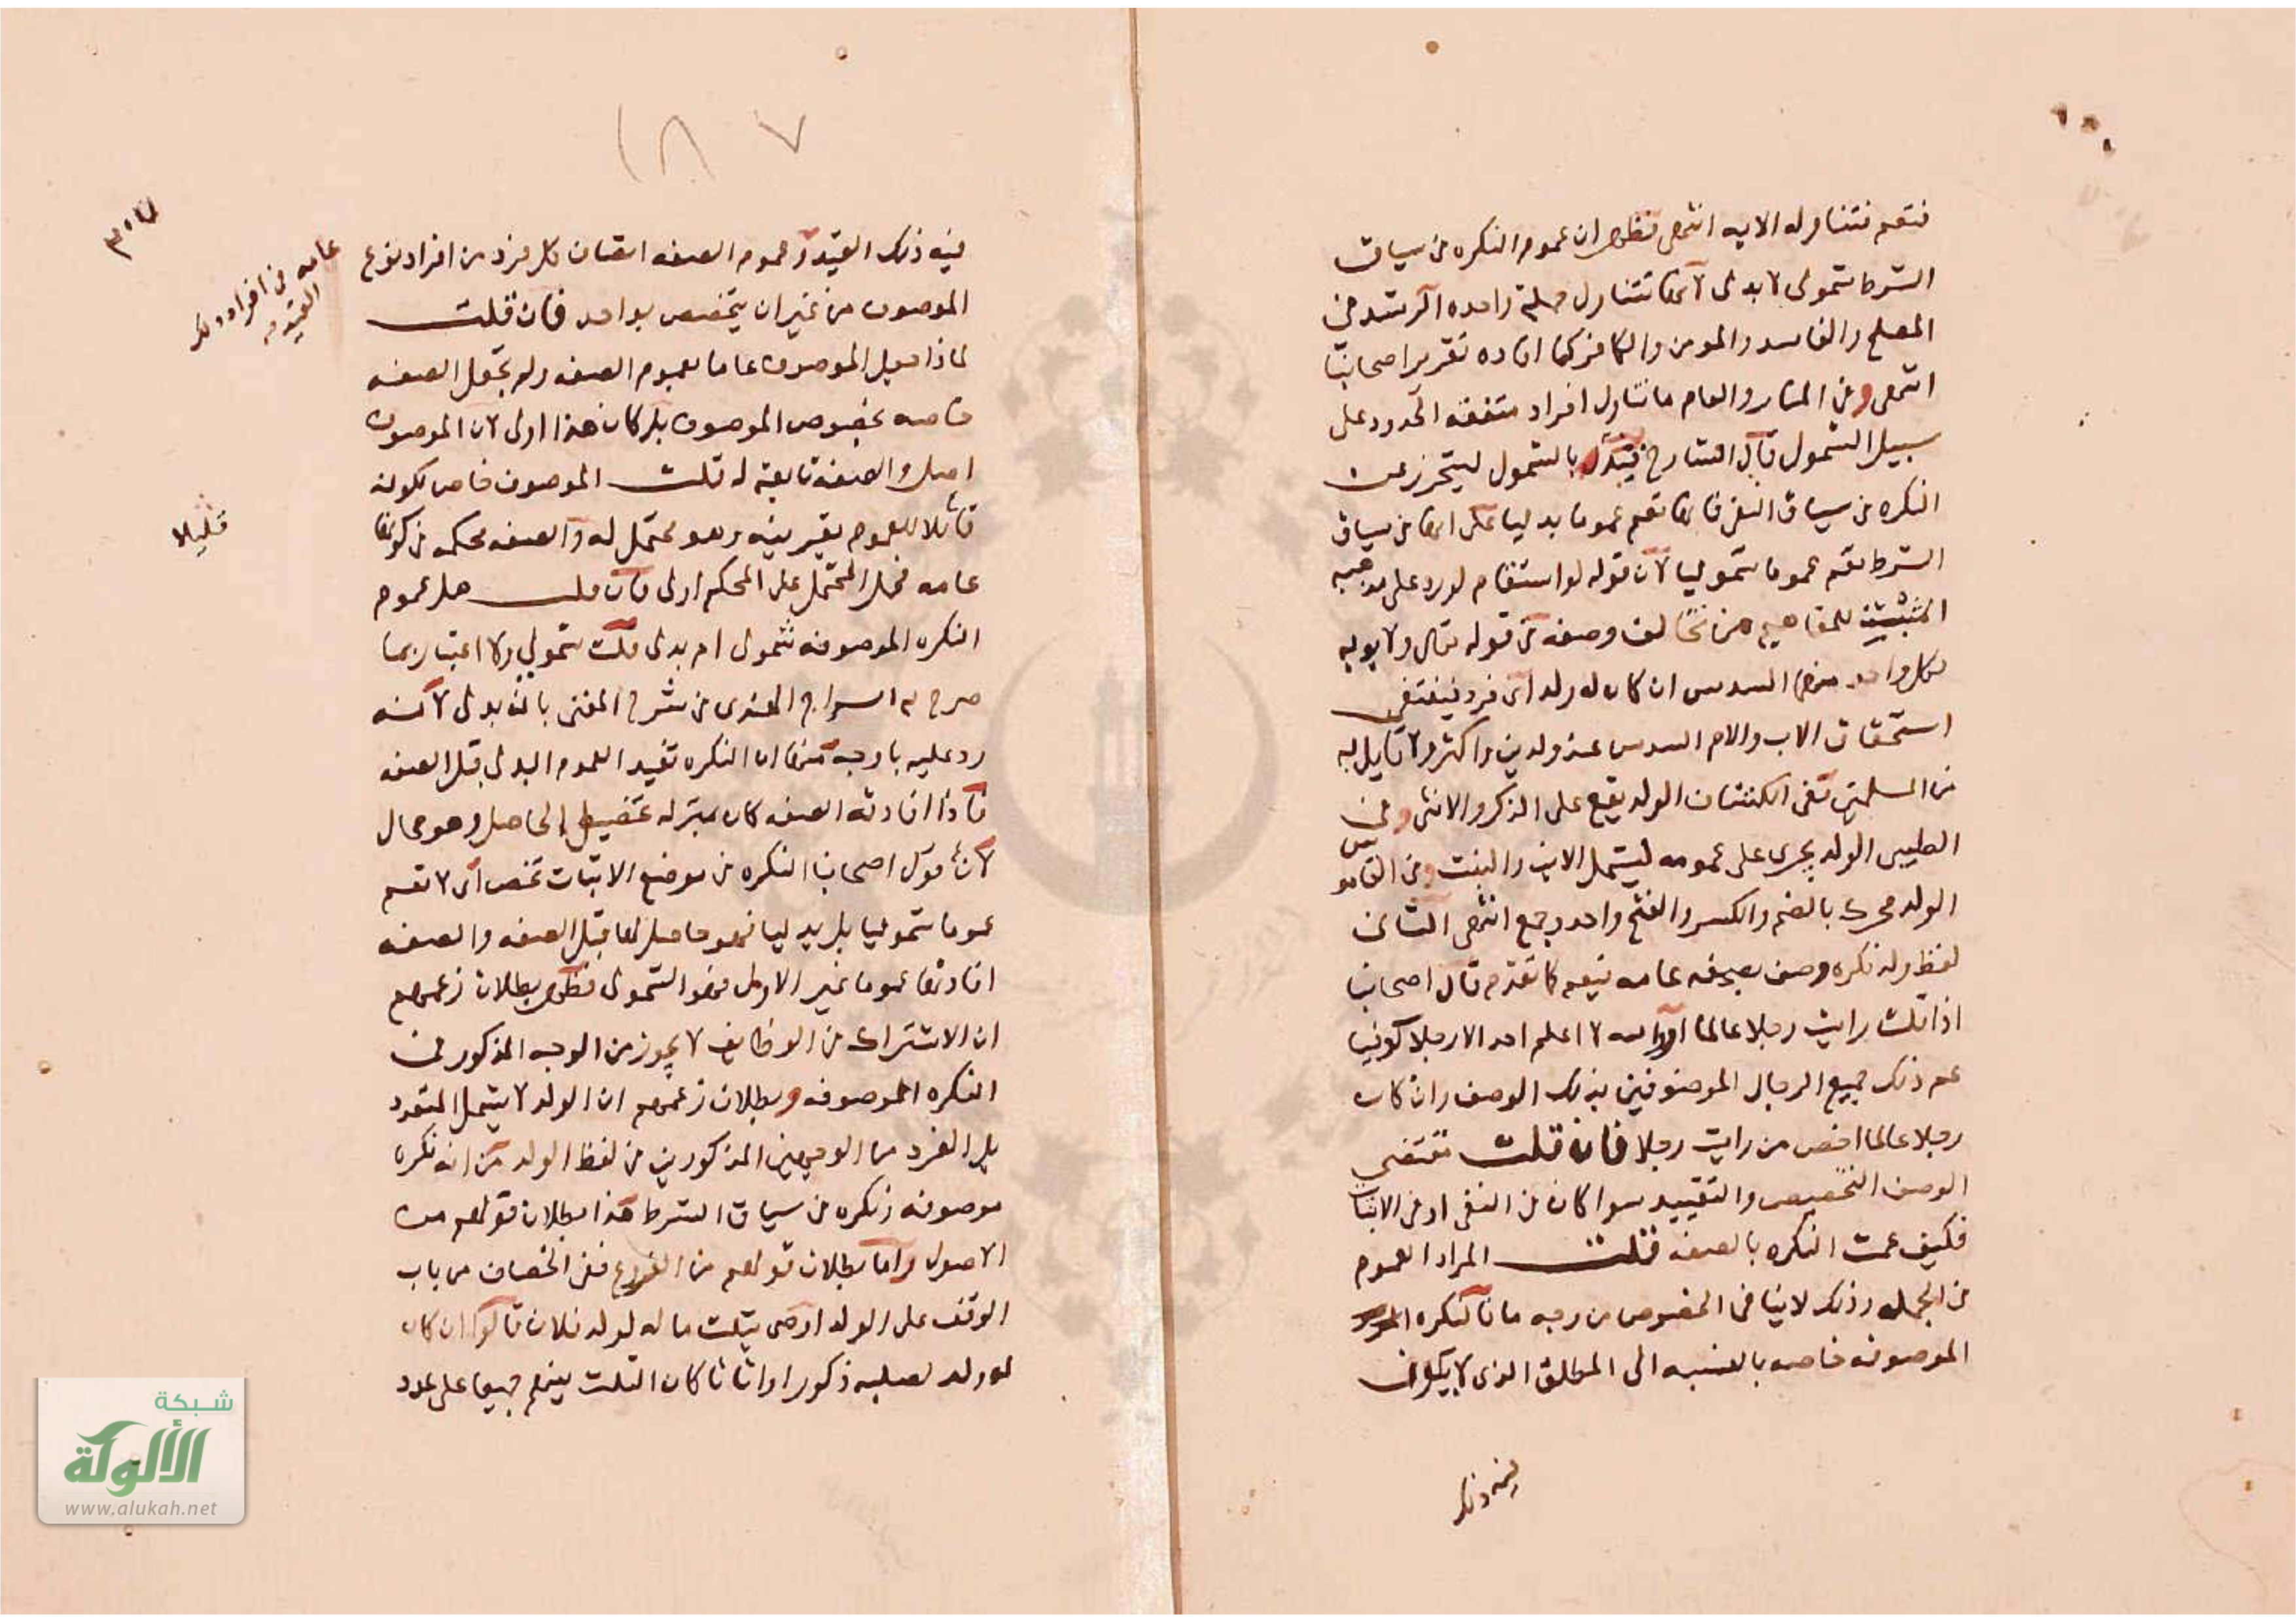 فتعم فتتناوله الايه انتهى فظهر ان عموم النكره في سياق
الشرط شمولى لا بدلى لانها تتناول جملة واحده الرشد في
المصلح والفاسد والمومن والكافر كما افاده تقرير اصحابنا
انتهى وفى المنار والعام ما يتناول افراد متفقه الحدود على
سبيل الشمول قال الشارح قيد بالشمول ليتحرز عن
النكره في سياق النفى فانها تعم عموما بدليا على انها في سياق
الشرط تعم عموما شموليا لان قوله لو استقام لورد على مذهبه
المثبتين للمفاهيم من تخالف وصفه في قوله تعالى ولابويه
لكل واحد منهما السدس ان كان له ولد اى فرد فيقتضى
استحقاق الاب والام السدس عند ولدين واكثر ولا قايل به
من المسلمين ففى الكشاف الولد يقع على الذكر والانثى وفى
الطيبى الولد يجرى على عمومه ليشمل الابن والبنت وفى القاموس
الولد محركه بالضم والكسر والفتح واحد وجمع انتهى الثانى
لفظ ولد نكره وصف بصفه عامه فيعم كما تقدم قال اصحابنا
اذا قلت رايت رجلا عالما او والله لا اعلم احد الا رجلا كوفيا
عم ذلك جميع الرجال الموصوفين بذلك الوصف وان كان
رجلا عالما اخص من رايت رجلا فان قلت مقتضى
الوصف التخصيص والتقييد سوا كان في النفى او في الاثبات
فكيف عمت النكره بالصفه قلت المراد العموم
في الجمله وذلك لا ينافى الخصوص من وجه ما فالنكره
الموصوفه خاصه بالنسبه الى المطلق الذى لا يكون
فيه ذلك
١٨٧
٣٠٧
فيه ذلك القيد وعموم الصفه اتصاف كل فرد من افراد نوع
الموصوف من غير ان يتخصص بواحد فان قلت
لماذا جعل الموصوف عاما بعموم الصفه ولم تجعل الصفه
خاصه بخصوص الموصوف بل كان هذا اولى لان الموصوف
اصل والصفه تابعة له قلت الموصوف خاص لكونه
قابلا للعموم بقرينه وهو محتمل له والصفه محكمه في كونها
عامه فحمل المحتمل على المحكم اولى فان قلت هل عموم
النكره الموصوفه شمولى ام بدلى قلت شمولى ولا اعتبار بما
صرح به السراج الهندى في شرح المغنى بانه بدلى لانه
رد عليه باوجه منها ان النكره تفيد العموم البدلى قبل الصفه
فاذا افادته الصفه كان بمنزله تحصيل الحاصل وهو محال
لان قول اصحابنا النكره في موضع الاثبات تخص اى لا تعم
عموما شموليا بل بدليا فهو حاصل لها قبل الصفه والصفه
افادتها عموما غير الاول فهو الشمولى فظهر بطلان زعمهم
ان الاشتراك في الوظايف لا يجوز من الوجه المذكور في
النكره الموصوفه وبطلان زعمهم ان الولد لا يشمل المتعدد
بل الفرد من الوجهين المذكورين في لفظ الولد من انه نكره
موصوفه ونكره في سياق الشرط هذا بطلان قولهم من
الاصول واما بطلان قولهم من الفروع ففى الخصاف من باب
الوقف على الولد اوصى بثلث ماله لولد فلان قالوا ان كان
له ولد لصلبه ذكورا واناثا كان الثلث بينهم جميعا على عدد
عامه في افراد ذلك
القيد
قليلا
شبكة
الألوكة
www.alukah.net